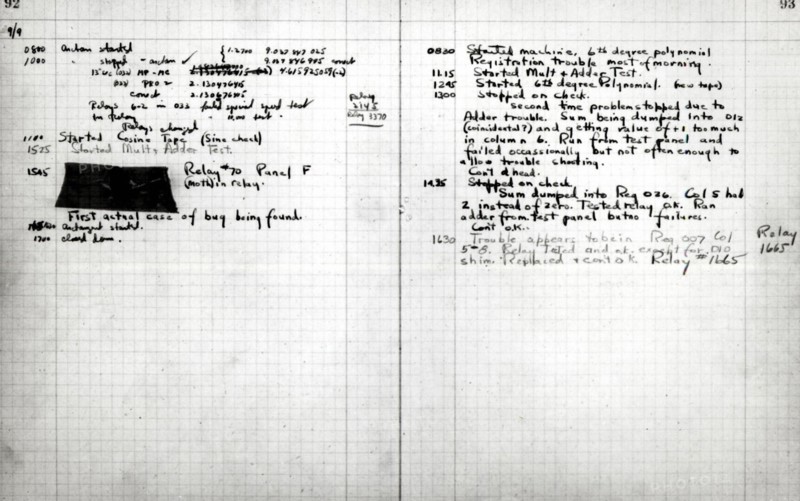 92
9/9
0800 Antan started { 1.2700 9.037 847 025
1000 " stopped - antan ✓ 9.037 846 995 correct
13" UC (032) MP - MC 4.615925059(-2)
(033) PRO 2 2.130476415
correct 2.130676415
Relays 6-2 in 033 failed special speed test
in Relay " 11.000 test.
Relays changed
Relay
2145
Relay 3370
1100 Started Cosine Tape (Sine check)
1525 Started Mult + Adder Test.
1545 Relay #70 Panel F
(moth) in relay.
First actual case of bug being found.
antangent started.
1700 closed down.
93
0830 Started machine, 6th degree polynomial
Registration trouble most of morning.
11.15 Started Mult + Adder Test.
1245 Started 6th degree Polynomial. (new tape)
1300 Stopped on check.
second time problem stopped due to
Adder trouble. Sum being dumped into 012
(coincidental?) and getting value of +1 too much
in column 6. Run from test panel and
failed occassionally but not often enough to
allow trouble shooting.
Con't ahead.
1435 Stopped on check
Sum dumped into Reg 026. Col 5 had
2 instead of zero. Tested relay o.k. Ran
adder from test panel but no failures.
Cont o.k.
1630 Trouble appears to be in Reg 007 Col
5-8. Relay Tested and o.k. except for .010
shim. Replaced + cont o.k. Relay #1665
Relay
1665